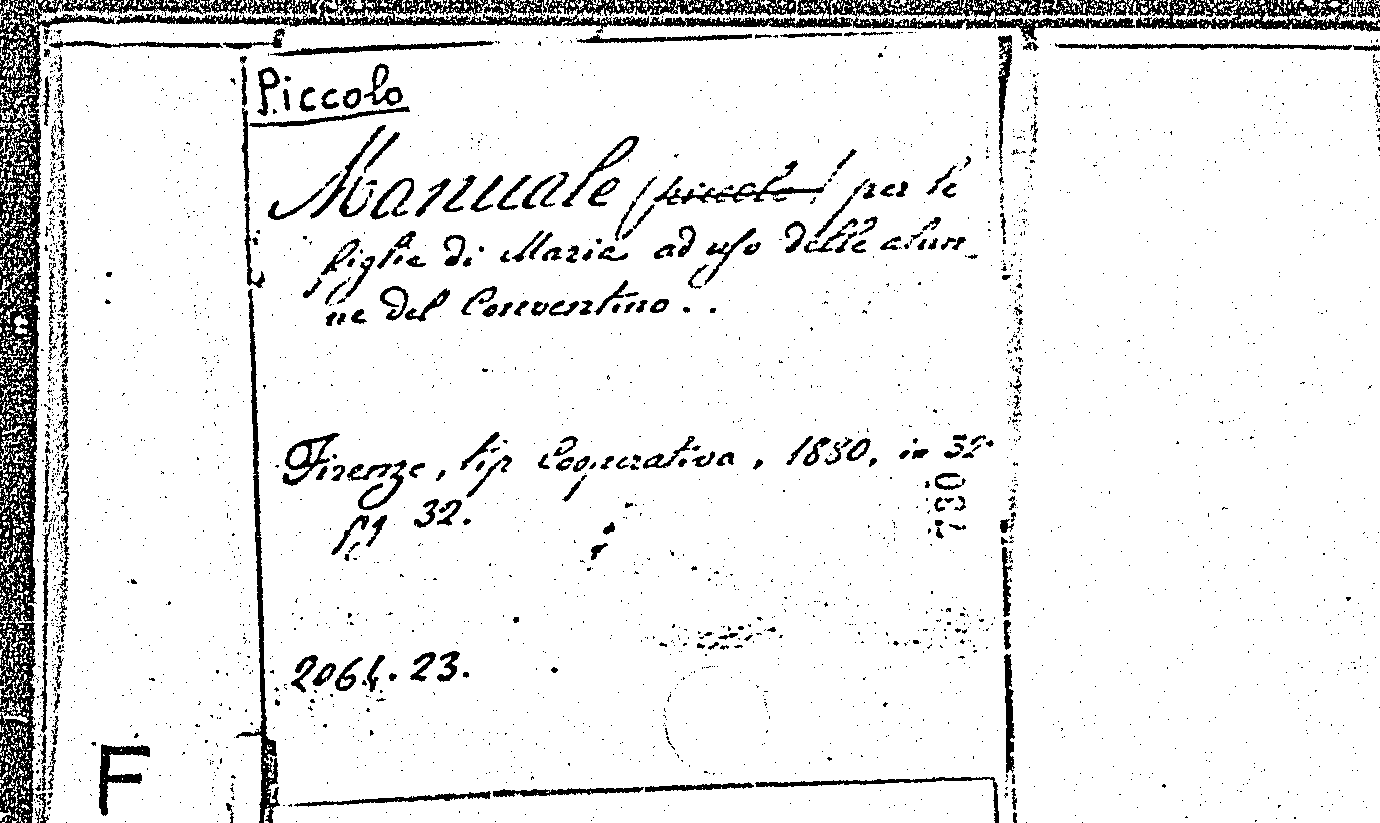 Piccolo
Manuale (piccolo) per le
figlie di Maria ad uso delle alun-
ne del Conventino..
Firenze, tip Cooperativa, 1880, in 32°
pg 32.
730
2064. 23.
F